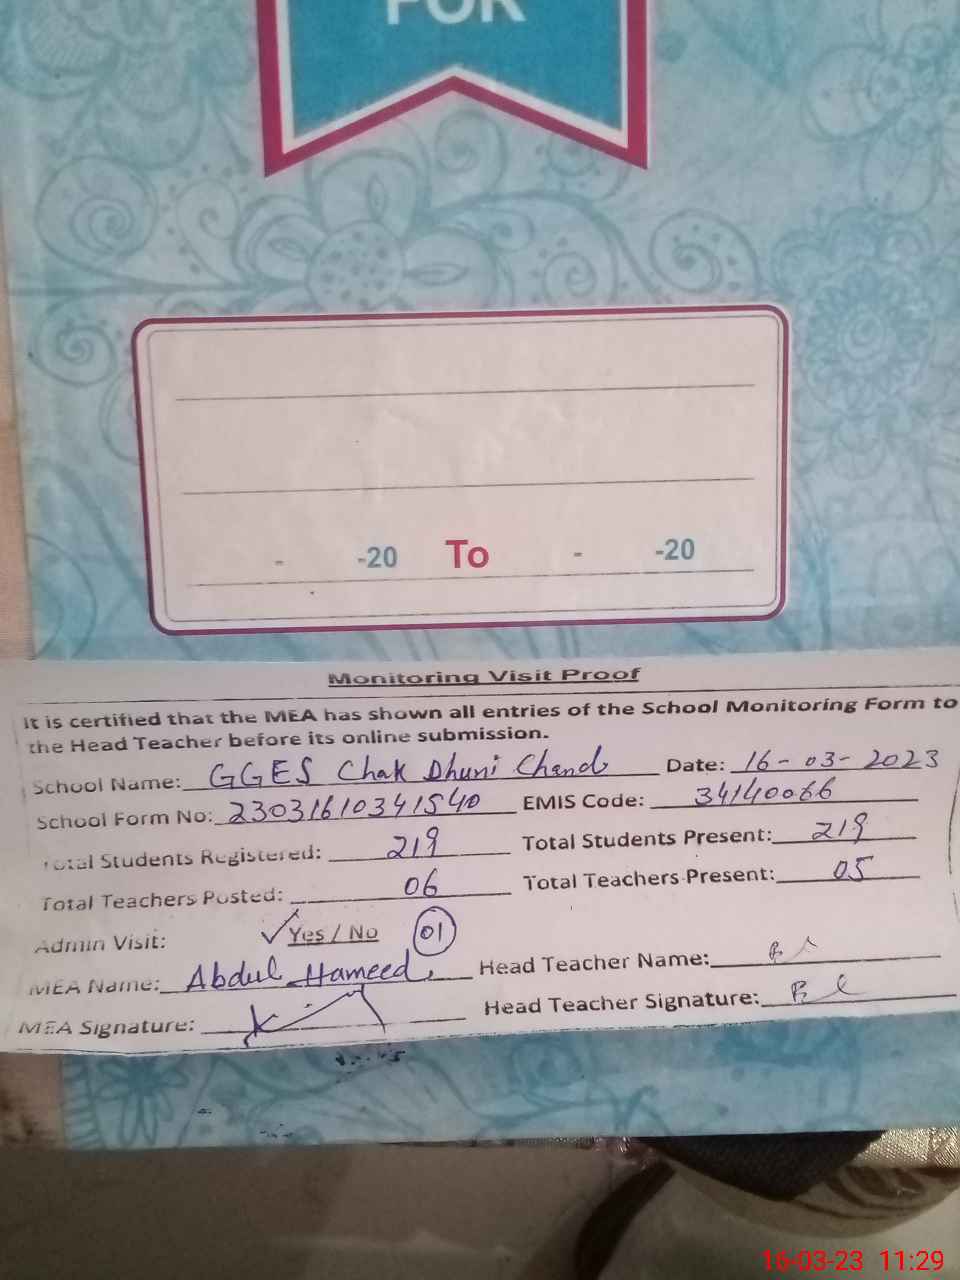 FOR
- -20 To - -20
Monitoring Visit Proof
It is certified that the MEA has shown all entries of the School Monitoring Form to
the Head Teacher before its online submission.
School Name: GGES Chak Dhuni Chand Date: 16-03-2023
School Form No: 23031610341540 EMIS Code: 34140066
Total Students Registered: 219 Total Students Present: 219
Total Teachers Posted: 06 Total Teachers Present: 05
Admin Visit: ✓Yes / No 01
MEA Name: Abdul Hameed Head Teacher Name:
MEA Signature: Head Teacher Signature:
16-03-23 11:29